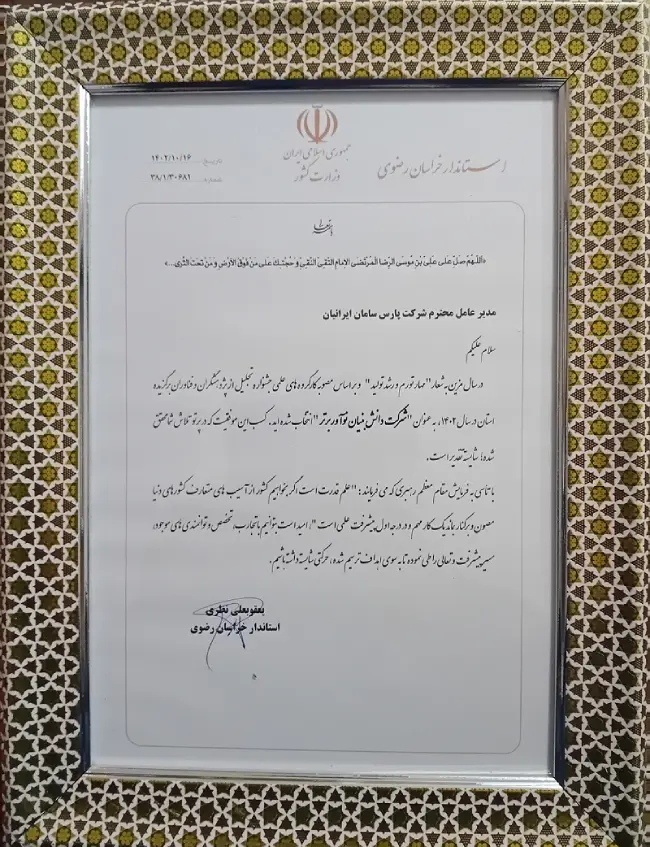 جمهوری اسلامی ایران
وزارت کشور
استاندار خراسان رضوی
تاریخ: ۱۴۰۲/۱۰/۱۶
شماره: ۳۸/۱/۳۰۶۸۱
«اَللّهُمَّ صَلِّ عَلی عَلِیِّ بْنِ مُوسَی الرِّضَا الْمُرْتَضی الإمامِ التَّقِیِّ النَّقِیِّ وَ حُجَّتِکَ عَلی مَنْ فَوْقَ الأرْضِ وَ مَنْ تَحْتَ الثَّری...»
مدیر عامل محترم شرکت پارس سامان ایرانیان
سلام علیکم
در سال مزین به شعار "مهار تورم و رشد تولید" و براساس مصوبه کارگروه های علمی جشنواره تجلیل از پژوهشگران و فناوران برگزیده
استان در سال ۱۴۰۲، به عنوان "شرکت دانش بنیان نوآور برتر" انتخاب شده اید. کسب این موفقیت که در پرتو تلاش شما محقق
شده، شایسته تقدیر است.
با تأسی به فرمایش مقام معظم رهبری که می فرمایند: "علم قدرت است اگر بخواهیم کشور از آسیب های متعارف کشورهای دنیا
مصون و برکنار بماند یک کار مهم و در درجه اول پیشرفت علمی است"، امید است بتوانیم با تجارب، تخصص و توانمندی های موجود،
مسیر پیشرفت و تعالی را طی نموده تا به سوی اهداف ترسیم شده، حرکتی شایسته داشته باشیم.
یعقوبعلی نظری
استاندار خراسان رضوی